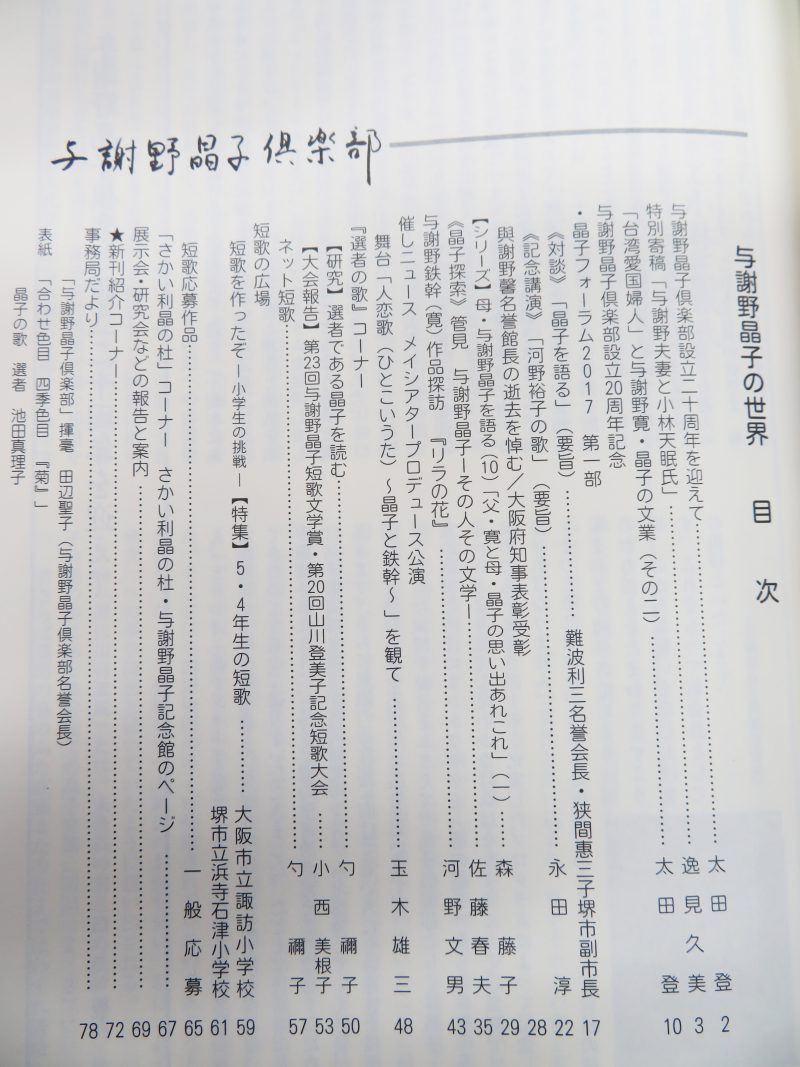 与謝野晶子の世界　目　次
与謝野晶子倶楽部設立二十周年を迎えて……太田　登　2
特別寄稿「与謝野夫妻と小林天眠氏」……逸見久美　3
「台湾愛国婦人」と与謝野寛・晶子の文業（その二）……太田　登　10
与謝野晶子倶楽部設立20周年記念
・晶子フォーラム2017　第一部
《対談》「晶子を語る」（要旨）……難波利三名誉会長・狭間惠三子堺市副市長　17
《記念講演》「河野裕子の歌」（要旨）……永田　淳　22
與謝野馨名誉館長の逝去を悼む／大阪府知事表彰受彰　28
【シリーズ】母・与謝野晶子を語る（10）「父・寛と母・晶子の思い出あれこれ」（一）……森　藤子　29
《晶子探索》管見　与謝野晶子ーその人その文学ー……佐藤春夫　35
与謝野鉄幹（寛）作品探訪　『リラの花』……河野文男　43
催しニュース　メイシアタープロデュース公演
舞台「人恋歌（ひとこいうた）～晶子と鉄幹～」を観て……玉木雄三　48
『選者の歌』コーナー
【研究】選者である晶子を読む……勺　禰子　50
【大会報告】第23回与謝野晶子短歌文学賞・第20回山川登美子記念短歌大会……小西美根子　53
ネット短歌……勺　禰子　57
短歌の広場
短歌を作ったぞー小学生の挑戦ー【特集】5・4年生の短歌……大阪市立諏訪小学校　59
堺市立浜寺石津小学校　61
短歌応募作品……一般応募　65
「さかい利晶の杜」コーナー　さかい利晶の杜・与謝野晶子記念館のページ……67
展示会・研究会などの報告と案内……69
★新刊紹介コーナー……72
事務局だより……78
「与謝野晶子倶楽部」揮毫　田辺聖子（与謝野晶子倶楽部名誉会長）
表紙　「合わせ色目　四季色目　『菊』」
晶子の歌　選者　池田真理子
与謝野晶子倶楽部